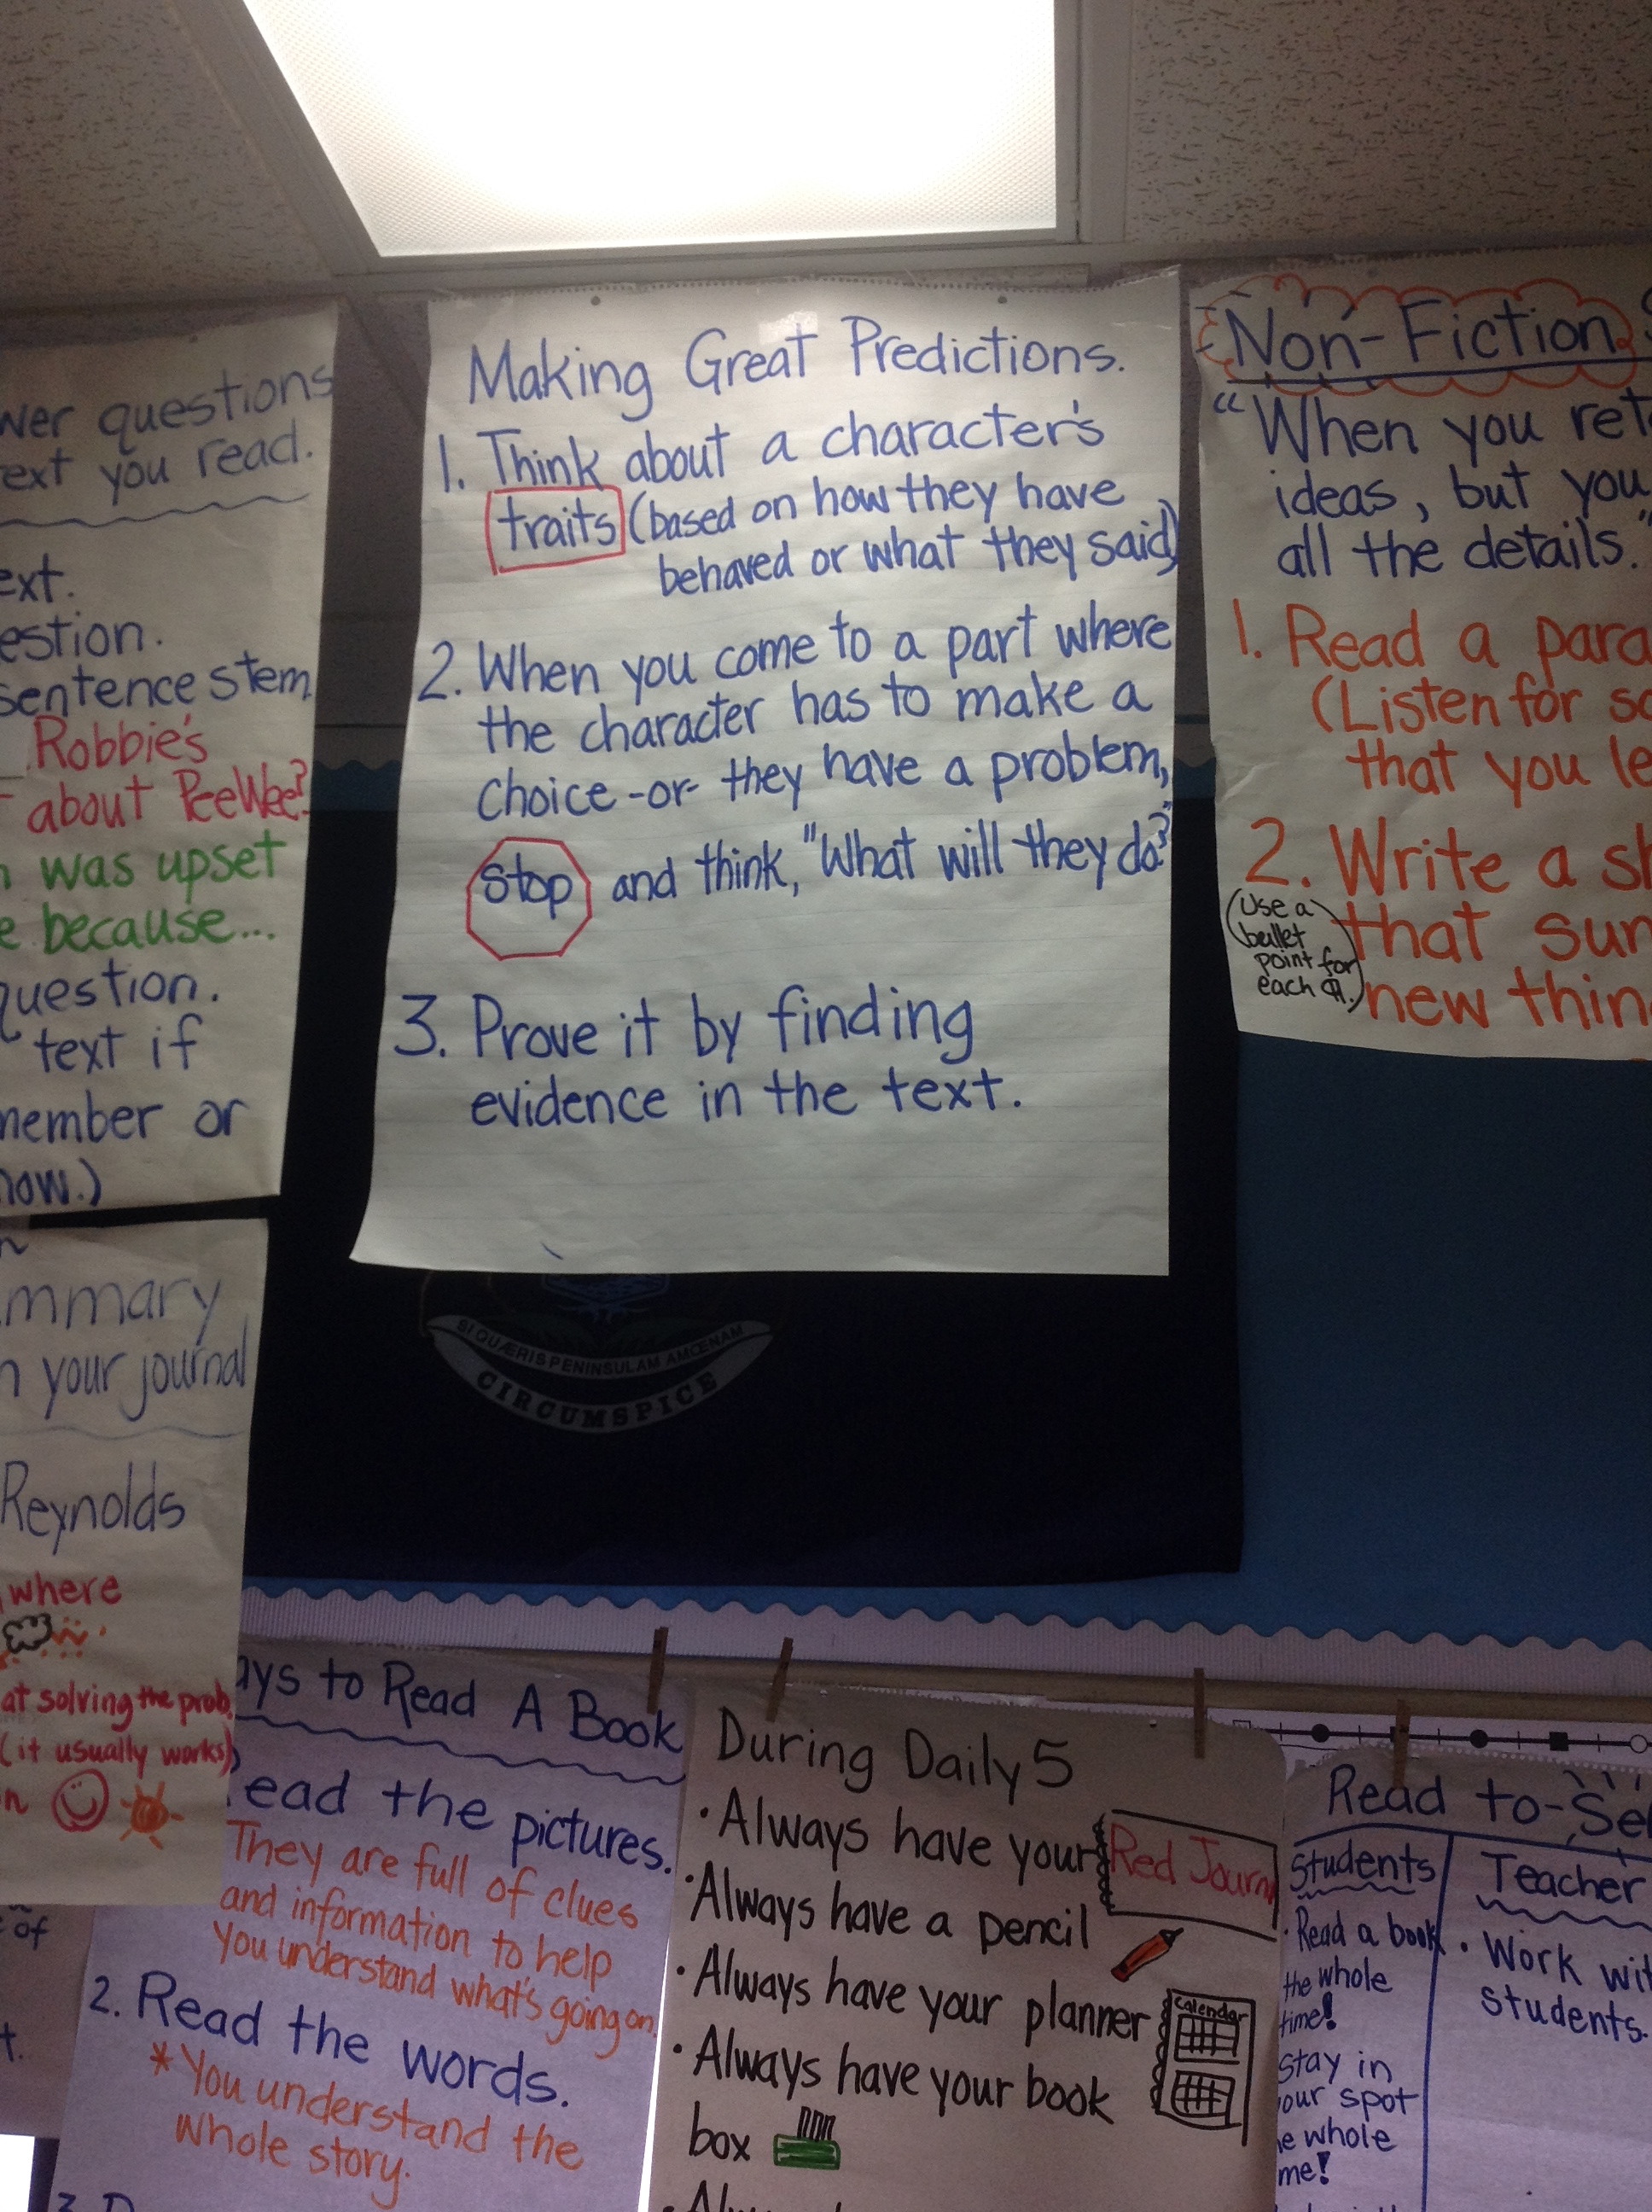 Making Great Predictions.
1. Think about a character's
traits (based on how they have
behaved or what they said)
2. When you come to a part where
the character has to make a
choice -or- they have a problem,
stop and think, "What will they do?"
3. Prove it by finding
evidence in the text.
questions
ext you read.
ext.
estion.
sentence stem
Robbie's
about PeeWee?
was upset
because...
question.
text if
member or
now.)
Non-Fiction
"When you ret
ideas, but you
all the details."
1. Read a para
(Listen for so
that you le
2. Write a sh
that sum
new thin
(Use a
bullet
point for
each ¶.)
mmary
n your journal
Reynolds
where
at solving the prob.
(it usually works)
n
SI QUÆRIS PENINSULAM AMŒNAM
CIRCUMSPICE
ays to Read A Book
ead the pictures.
They are full of clues
and information to help
you understand what's going on.
2. Read the words.
*You understand the
whole story.
3.
of
t.
During Daily 5
• Always have your Red Journ
• Always have a pencil
• Always have your planner
Calendar
• Always have your book
box
Read to-Sel
Students
• Read a book
the whole
time!
Stay in
our spot
e whole
me!
Teacher
• Work wit
students.